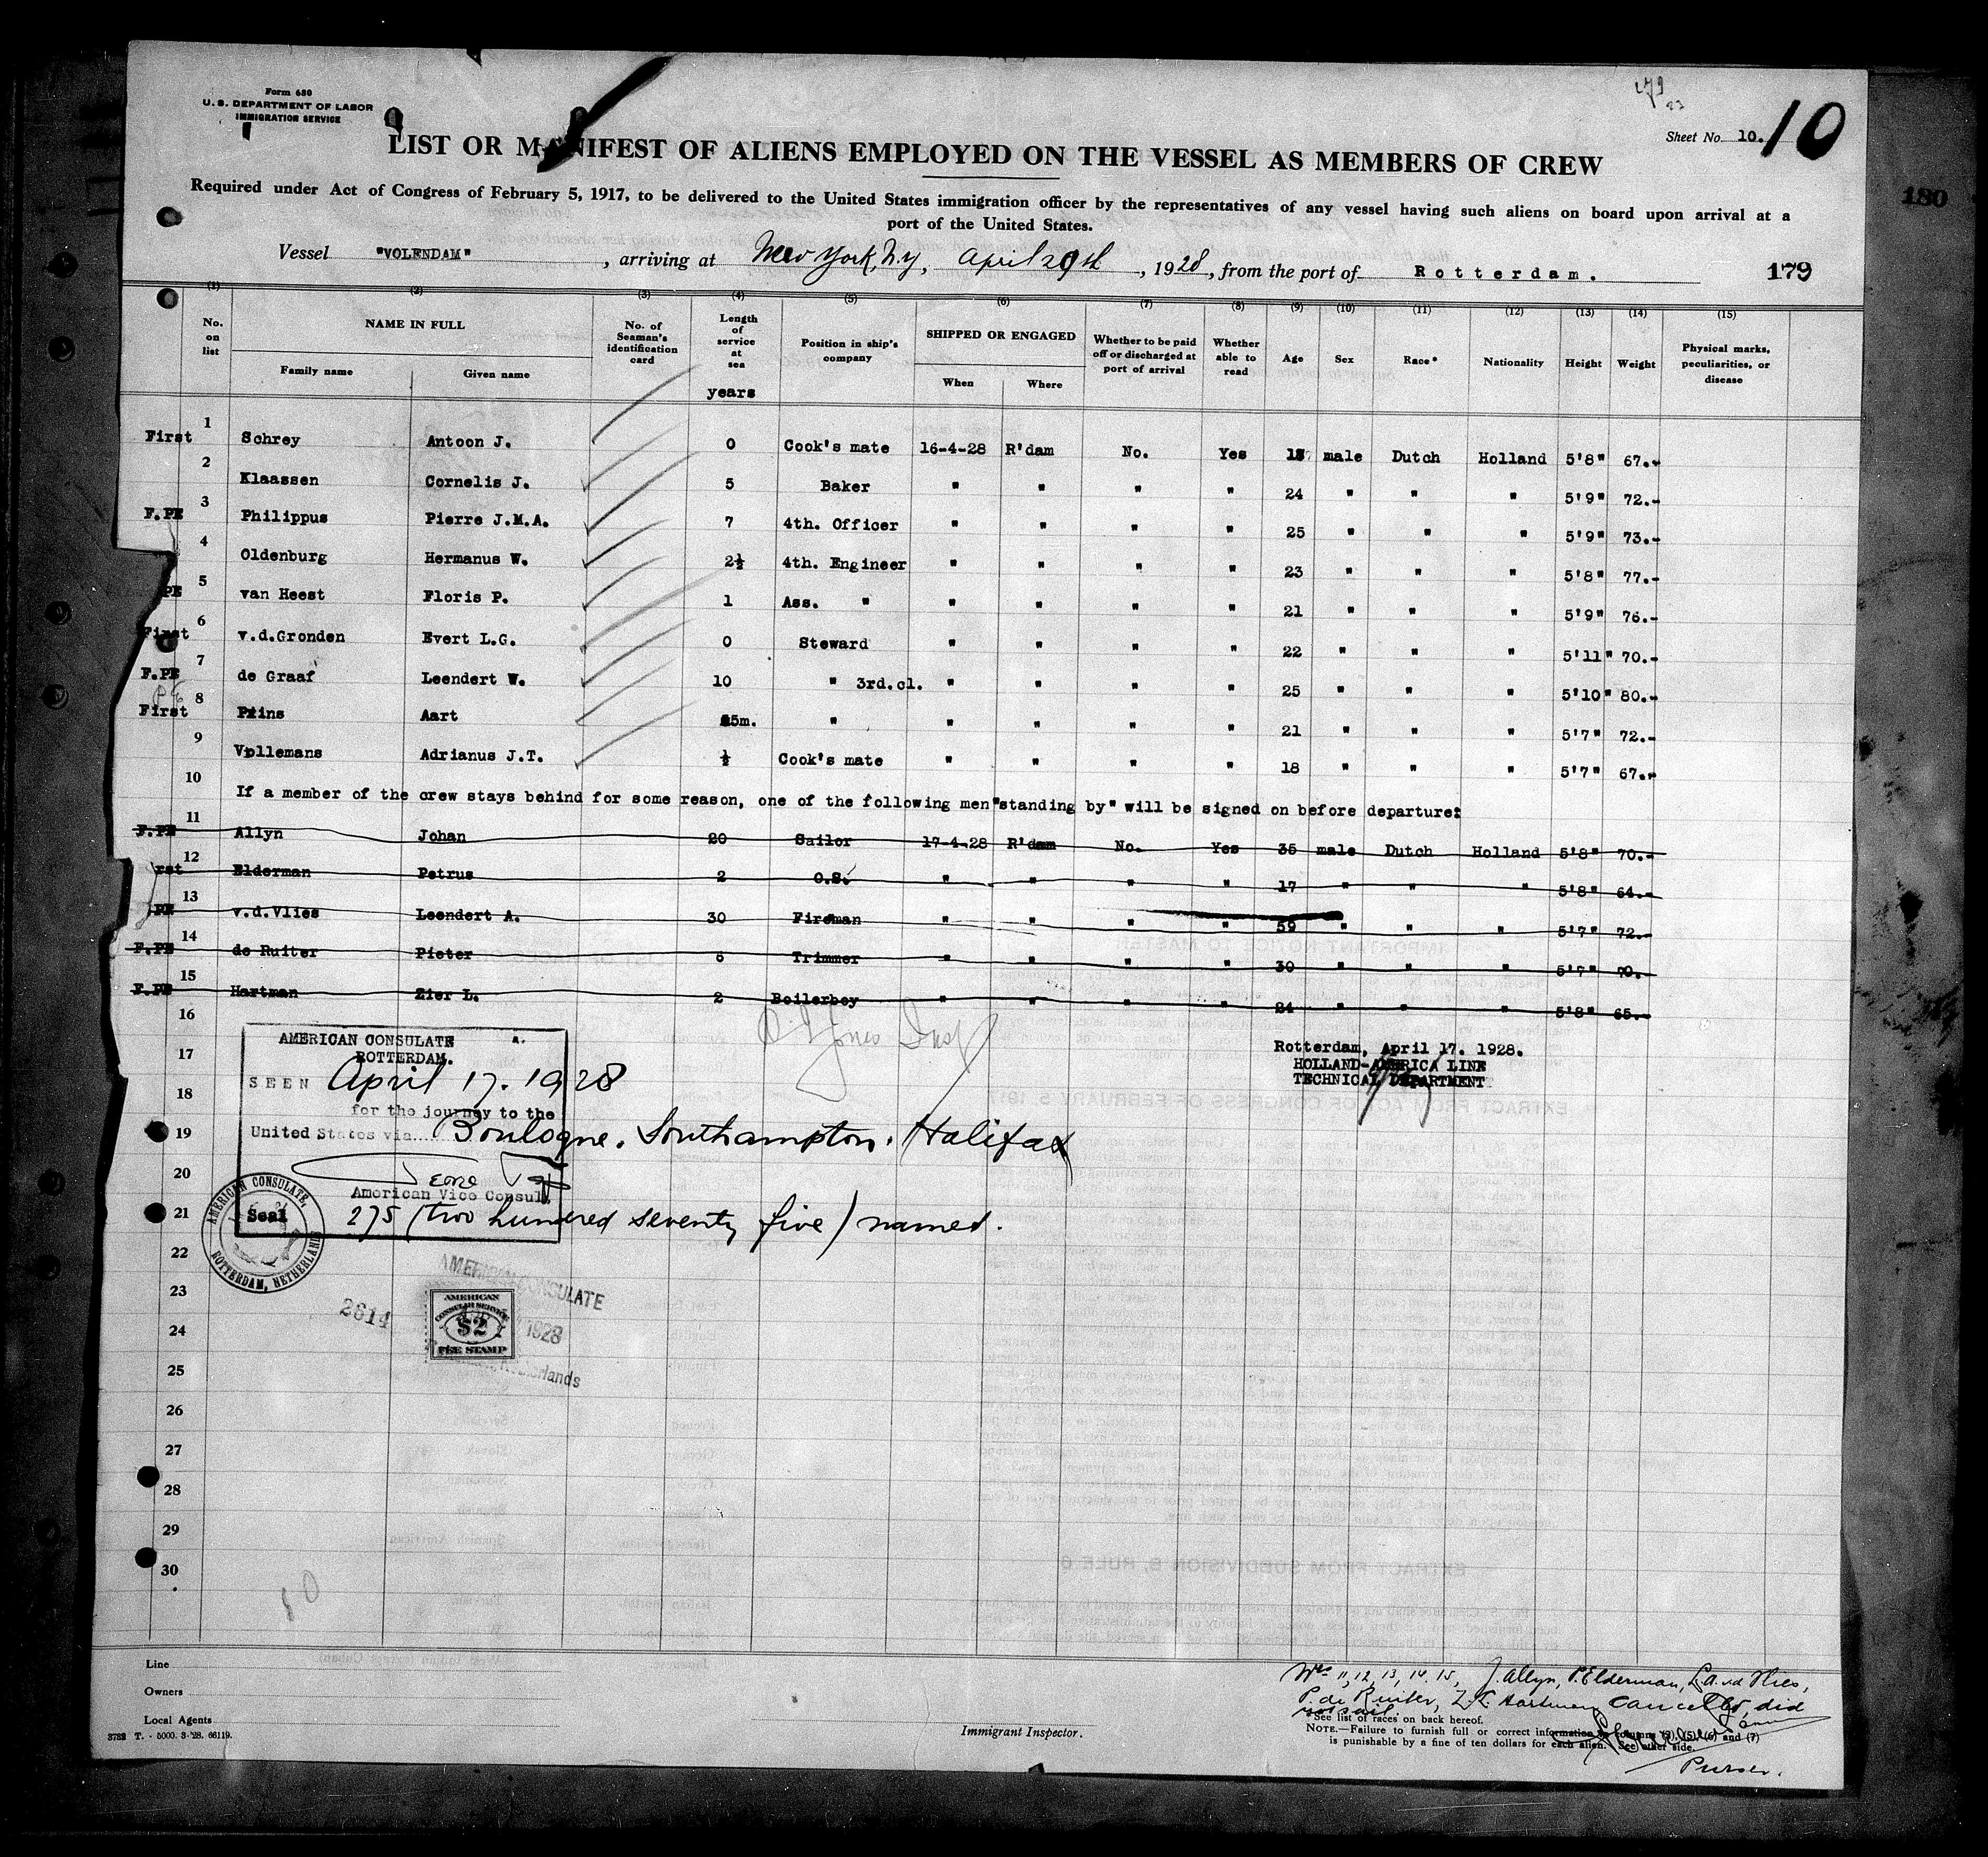 Form 680
U. S. DEPARTMENT OF LABOR
IMMIGRATION SERVICE
179
23
Sheet No. 10.
10
LIST OR MANIFEST OF ALIENS EMPLOYED ON THE VESSEL AS MEMBERS OF CREW
180
Required under Act of Congress of February 5, 1917, to be delivered to the United States immigration officer by the representatives of any vessel having such aliens on board upon arrival at a
port of the United States.
Vessel "VOLENDAM", arriving at New York, N.Y, April 29th, 1928, from the port of Rotterdam.
179
(1) (2) (3) (4) (5) (6) (7) (8) (9) (10) (11) (12) (13) (14) (15)
No. on list
NAME IN FULL
Family name Given name
No. of Seaman's identification card
Length of service at sea
years
Position in ship's company
SHIPPED OR ENGAGED
When Where
Whether to be paid off or discharged at port of arrival
Whether able to read
Age Sex Race* Nationality Height Weight
Physical marks, peculiarities, or disease
First 1 Schrey Antoon J. 0 Cook's mate 16-4-28 R'dam No. Yes male Dutch Holland 5'8" 67.-
2 Klaassen Cornelis J. 5 Baker " " " " 24 " " " 5'9" 72.-
F.PE 3 Philippus Pierre J.M.A. 7 4th. Officer " " " " 25 " " " 5'9" 73.-
4 Oldenburg Hermanus W. 2½ 4th. Engineer " " " " 23 " " " 5'8" 77.-
PE 5 van Heest Floris P. 1 Ass. " " " " " 21 " " " 5'9" 76.-
First 6 v.d.Gronden Evert L.G. 0 Steward " " " " 22 " " " 5'11" 70.-
F.PE 7 de Graaf Leendert W. 10 " 3rd.cl. " " " " 25 " " " 5'10" 80.-
First 8 Prins Aart 5m. " " " " " 21 " " " 5'7" 72.-
9 Vollemans Adrianus J.T. ½ Cook's mate " " " " 18 " " " 5'7" 67.-
10 If a member of the crew stays behind for some reason, one of the following men "standing by" will be signed on before departure:
F.PE 11 Allyn Johan 20 Sailor 17-4-28 R'dam No. Yes 35 male Dutch Holland 5'8" 70.-
rst 12 Elderman Petrus 2 O.S. " " " " 17 " " " 5'8" 64.-
.PE 13 v.d.Vlies Leendert A. 30 Fireman " " " " 59 " " " 5'7" 72.-
F.PE 14 de Ruiter Pieter 6 Trimmer " " " " 30 " " " 5'7" 70.-
F.PE 15 Hartman Zier L. 2 Boilerboy " " " " 24 " " " 5'8" 65.-
16
17
18
19
20
21
22
23
24
25
26
27
28
29
30
Jones Insp
AMERICAN CONSULATE
ROTTERDAM.
SEEN April 17. 1928
for the journey to the
United States via Boulogne. Southampton. Halifax
American Vice Consul.
275 (two hundred seventy five) named.
Seal
AMERICAN CONSULATE,
ROTTERDAM, NETHERLAND
Rotterdam, April 17. 1928.
HOLLAND-AMERICA LINE
TECHNICAL DEPARTMENT
2614
AMERICAN CONSULATE
1928
AMERICAN
CONSULAR SERVICE
$2
FEE STAMP
10
Line
Owners
Local Agents
3782 T. - 5000. 3-'28. 66119.
Immigrant Inspector.
Nos 11, 12, 13, 14, 15, J. Allyn, P. Elderman, L.A. vd Vlies,
P. de Ruiter, Z.L. Hartman cancelled, did
not sail.
*See list of races on back hereof.
NOTE.—Failure to furnish full or correct information in columns (3), (5), (6) and (7)
is punishable by a fine of ten dollars for each alien. See other side.
Purser.